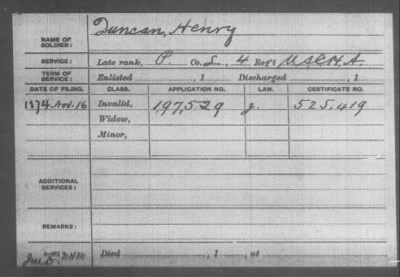 Duncan, Henry
NAME OF SOLDIER:
SERVICE: Late rank, P. Co. L, 4 Reg't U.S.C.H.A.
TERM OF SERVICE: Enlisted , 1 Discharged , 1
DATE OF FILING. CLASS. APPLICATION NO. LAW. CERTIFICATE NO.
1874 Nov. 16 Invalid, 197,529 g. 525,419
Widow,
Minor,
ADDITIONAL SERVICES:
REMARKS:
Died , 1 , at